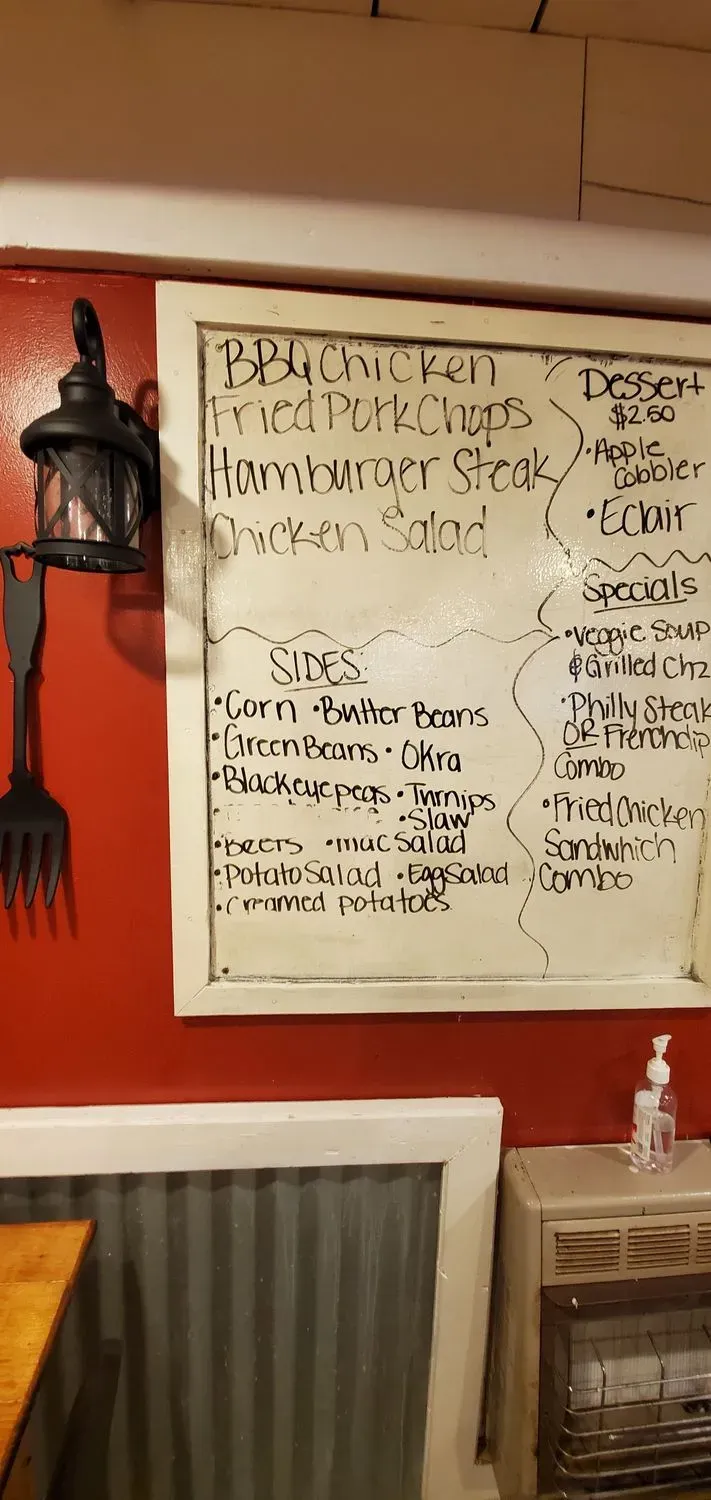 BBQ Chicken
Fried Pork Chops
Hamburger Steak
Chicken Salad
SIDES:
•Corn •Butter Beans
•Green Beans •Okra
•Blackeyepeas •Turnips
•Slaw
•Beets •Mac Salad
•Potato Salad •Egg Salad
•Creamed potatoes
Dessert
$2.50
•Apple
Cobbler
•Eclair
Specials
•Veggie Soup
& Grilled Chz
•Philly Steak
OR Frenchdip
Combo
•Fried Chicken
Sandwhich
Combo